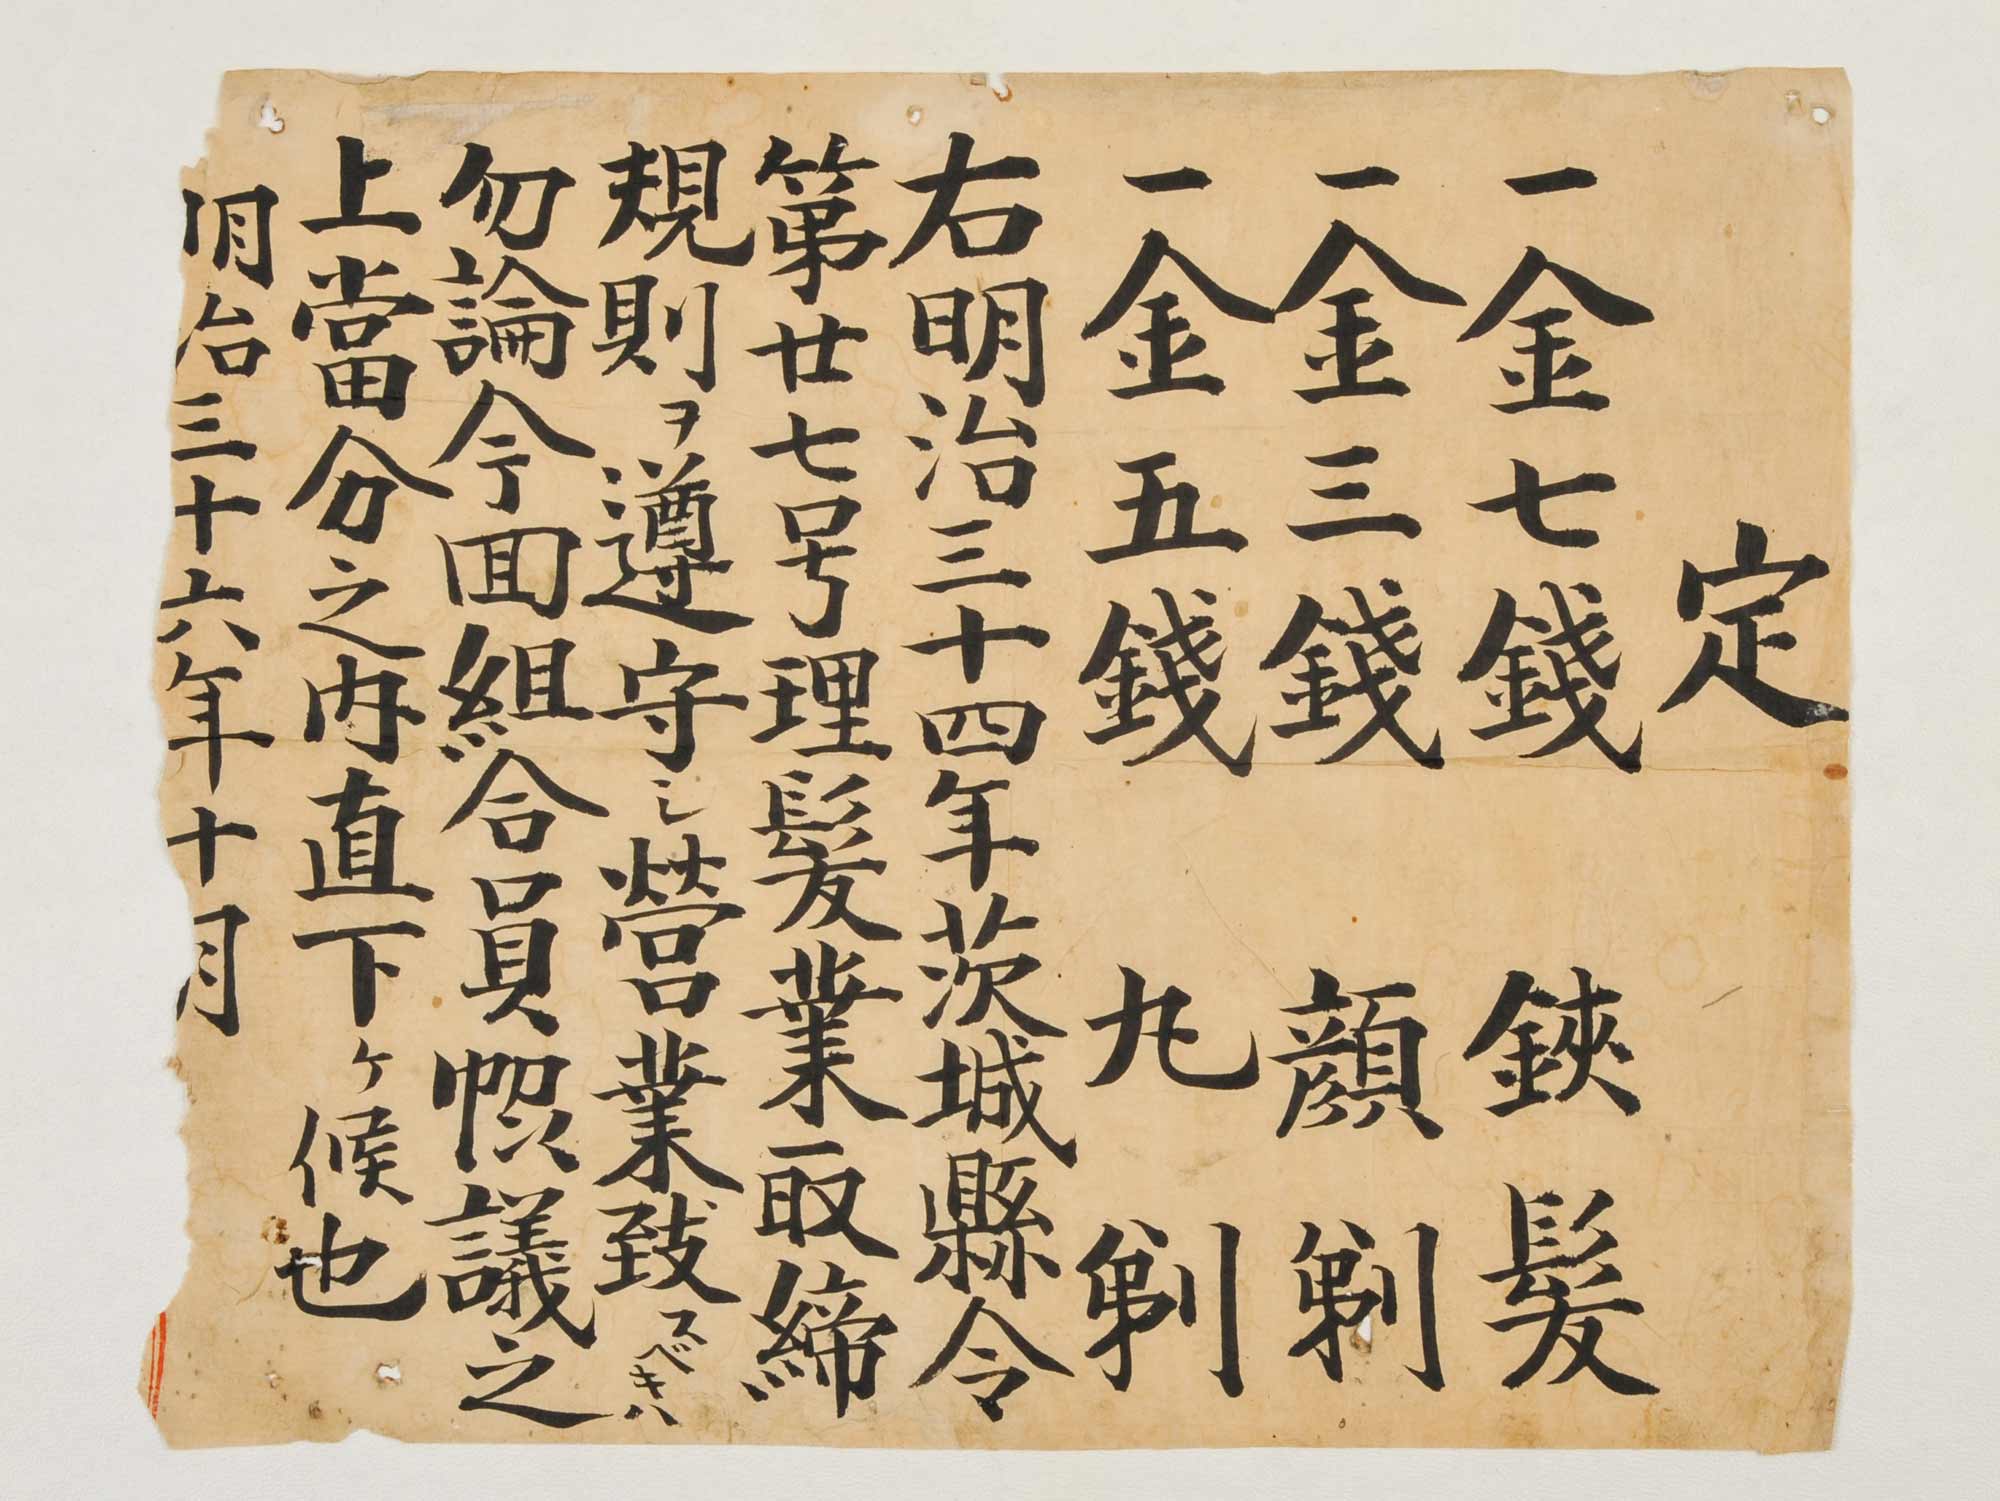 定
一金七錢 鋏髪
一金三錢 顔剃
一金五錢 丸剃
右明治三十四年茨城縣令
第廿七号理髪業取締
規則ヲ遵守シ営業致スベキハ
勿論今回組合員恊議之
上當分之内直下ケ候也
明治三十六年十月